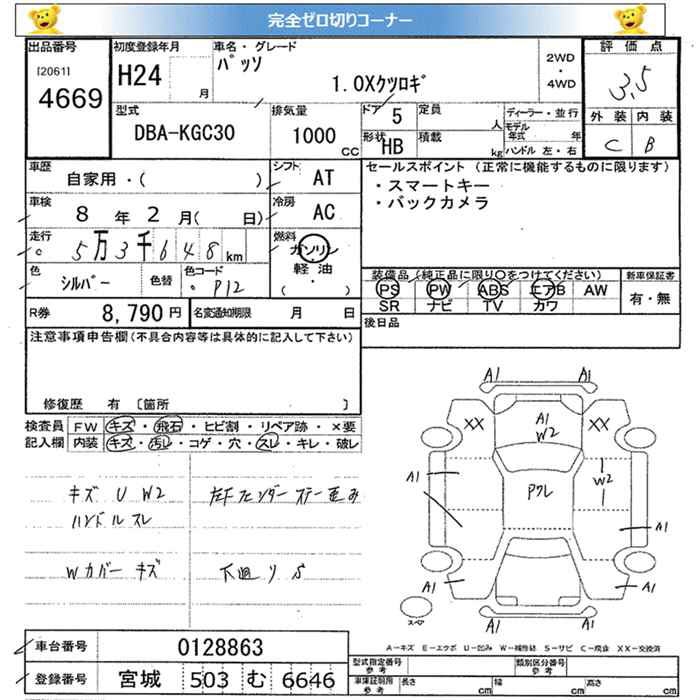 完全ゼロ切りコーナー
出品番号 初度登録年月 車名・グレード 評価点
[2061] 4669 H24 月 パッソ 1.0Xクツロギ 2WD・4WD 3.5
型式 排気量 ドア 5 定員 人 ディーラー・並行 外装 内装
DBA-KGC30 1000 CC 形状 HB 積載 kg モデル年式 年 ハンドル 左・右 C B
車歴 自家用・( ) シフト AT セールスポイント(正常に機能するものに限ります)
・スマートキー
・バックカメラ
車検 8年 2月( 日) 冷房 AC
走行 5万3千648km 燃料 ガソリン 軽油 ( ・ )
色 シルバー 色替 色コード P12
装備品(純正品に限り○をつけてください) 新車保証書
PS PW ABS エアB AW 有・無
SR ナビ TV カワ
R券 8,790円 名変通知期限 月 日 後日品
注意事項申告欄(不具合内容等は具体的に記入して下さい)
修復歴 有 [箇所 ]
検査員 FW キズ・飛石・ヒビ割・リペア跡・×要
記入欄 内装 キズ・汚レ・コゲ・穴・スレ・キレ・破レ
キズ U W2 左Fフェンダーステー歪み
ハンドルスレ
Wカバーキズ 下廻りS
A1 A1
XX A1 W2 XX
A1 Pクレ W2
A1
A1 A1
A1 A1
スペア
A-キズ E-エクボ U-凹み W-補修跡 S-サビ C-腐食 XX-交換済
車台番号 0128863
登録番号 宮城 503 む 6646
型式指定番号 参考 類別区分番号 参考
車庫証明用 参考 長さ cm 幅 cm 高さ cm